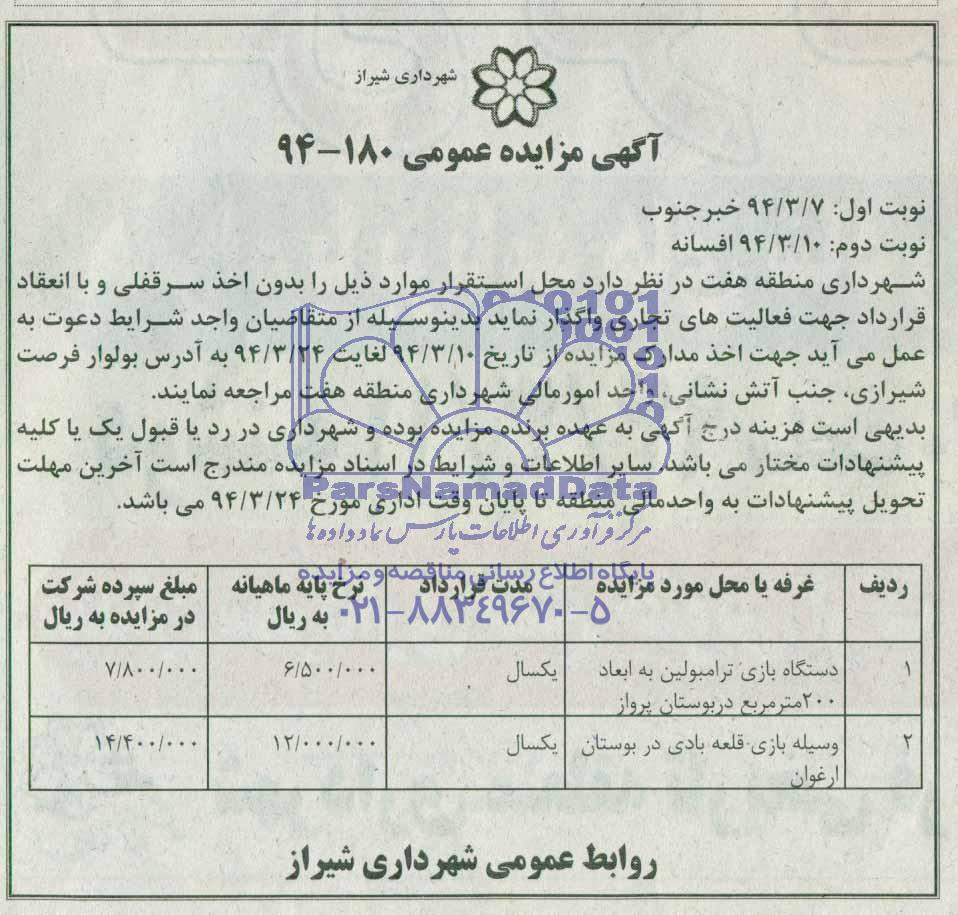 شهرداری شیراز
آگهی مزایده عمومی ۱۸۰-۹۴
نوبت اول: ۹۴/۳/۷ خبرجنوب
نوبت دوم: ۹۴/۳/۱۰ افسانه
شهرداری منطقه هفت در نظر دارد محل استقرار موارد ذیل را بدون اخذ سرقفلی و با انعقاد
قرارداد جهت فعالیت های تجاری واگذار نماید بدینوسیله از متقاضیان واجد شرایط دعوت به
عمل می آید جهت اخذ مدارک مزایده از تاریخ ۹۴/۳/۱۰ لغایت ۹۴/۳/۲۴ به آدرس بولوار فرصت
شیرازی، جنب آتش نشانی، واحد امورمالی شهرداری منطقه هفت مراجعه نمایند.
بدیهی است هزینه درج آگهی به عهده برنده مزایده بوده و شهرداری در رد یا قبول یک یا کلیه
پیشنهادات مختار می باشد. سایر اطلاعات و شرایط در اسناد مزایده مندرج است آخرین مهلت
تحویل پیشنهادات به واحدمالی منطقه تا پایان وقت اداری مورخ ۹۴/۳/۲۴ می باشد.
ParsNamadData
مرکز فرآوری اطلاعات پارس نماد داده ها
پایگاه اطلاع رسانی مناقصه و مزایده
۰۲۱-۸۸۳۴۹۶۷۰-۵
ردیف غرفه یا محل مورد مزایده مدت قرارداد نرخ پایه ماهیانه مبلغ سپرده شرکت
به ریال در مزایده به ریال
۱ دستگاه بازی ترامبولین به ابعاد یکسال ۶/۵۰۰/۰۰۰ ۷/۸۰۰/۰۰۰
۲۰۰مترمربع دربوستان پرواز
۲ وسیله بازی-قلعه بادی در بوستان یکسال ۱۲/۰۰۰/۰۰۰ ۱۴/۴۰۰/۰۰۰
ارغوان
روابط عمومی شهرداری شیراز